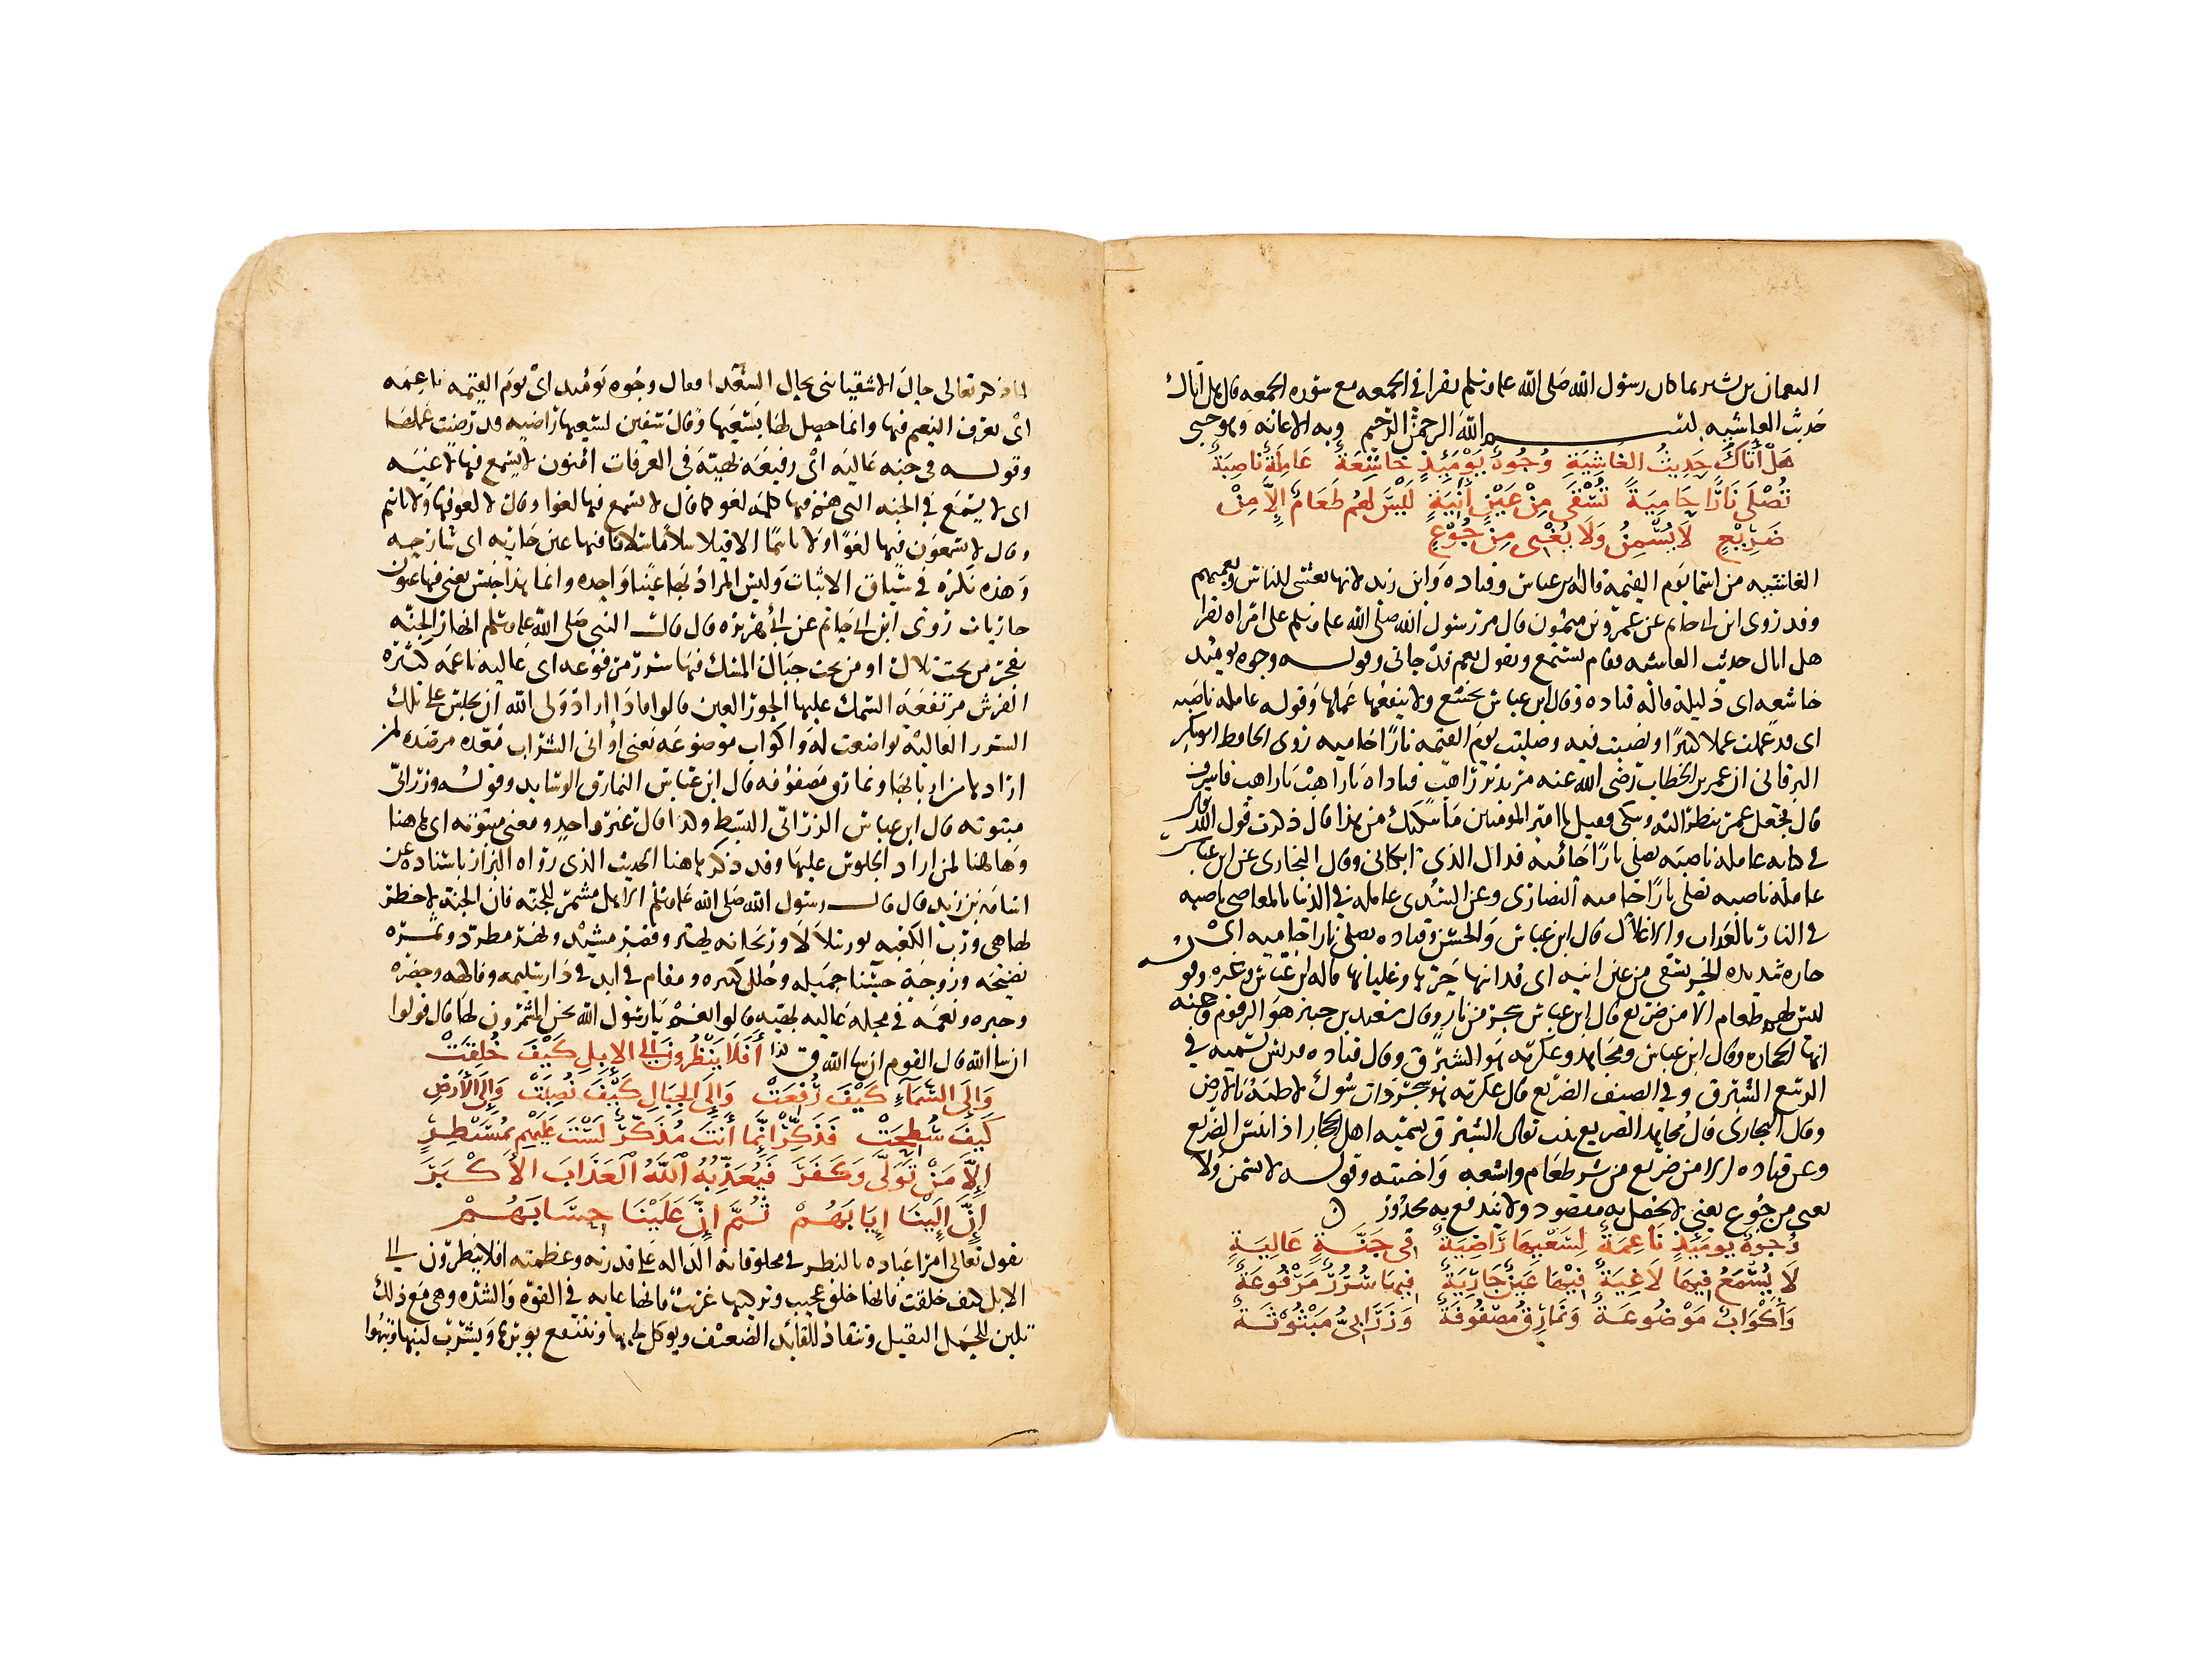 النعمان بن بشير بما كان رسول الله صلى الله عليه وسلم يقرا في الجمعه مع سوره الجمعه قال هل اتاك
حديث الغاشيه بسم الله الرحمن الرحيم وبه الاعانه وهو حسبي
هَلْ أَتَاكَ حَدِيثُ الغَاشِيَةِ وُجُوهٌ يَوْمَئِذٍ خَاشِعَةٌ عَامِلَةٌ نَاصِبَةٌ
تُصْلَى نَارًا حَامِيَةً تُسْقَى مِنْ عَيْنٍ آنِيَةٍ لَيْسَ لَهُم طَعَامٌ إِلَّا مِنْ
ضَرِيْعٍ لَا يُسْمِنُ وَلَا يُغْنِى مِنْ جُوْعٍ
الغاشيه من اسما يوم القيمه قاله ابن عباس وقتاده وابن زيد لانها تغشى للناس وتعمهم
وقد روى ابن ابي حاتم عن عمرو بن ميمون قال مر رسول الله صلى الله عليه وسلم على امراه تقرا
هل اتاك حديث الغاشيه فقام يستمع ويقول نعم قد جاني وقوله وجوه يومئذ
خاشعه اى ذليله قاله قتاده وقال ابن عباس تخشع ولا ينفعها عملها وقوله عامله ناصبه
اى قد عملت عملا كثيرا ونصبت فيه وصليت يوم القيمه نارا حاميه روى الحافظ ابو بكر
البرقاني ان عمر بن الخطاب رضى الله عنه مر بدير راهب فناداه يا راهب يا راهب فاشرف
قال فجعل عمر ينظر اليه ويبكى فقيل يا امير المومنين ما يبكيك من هذا قال ذكرت قول الله
في كتابه عامله ناصبه تصلى نارا حاميه فذاك الذى ابكاني وقال البخارى عن ابن عباس
عامله ناصبه تصلى نارا حاميه النصارى وعن السدى عامله في الدنيا بالمعاصي ناصبه
في النار بالعذاب والاغلال قال ابن عباس والحسن وقتاده تصلى نارا حاميه اى
حاره شديده الحر تسقى من عين انيه اى قد انتهى حرها وغليانها قاله ابن عباس وغيره وقوله
ليس لهم طعام الا من ضريع قال ابن عباس شجر من نار وقال سعيد بن جبير هو الزقوم وعنه
انها الحجاره وقال ابن عباس ومجاهد وعكرمه هو الشبرق وقال قتاده قريش تسميه في
الربيع الشبرق وفي الصيف الضريع قال عكرمه هو شجر ذات شوك لاطئه بالارض
وقال البخارى قال مجاهد الضريع نبت يقال الشبرق تسميه اهل الحجاز اذا يبس الضريع
وعن قتاده الا من ضريع من شر طعام وابشعه واخبثه وقوله لا يسمن ولا
يغنى من جوع يعني لا يحصل به مقصود ولا يندفع به محذور
وُجُوهٌ يَومَئِذٍ نَاعِمَةٌ لِسَعْيِهَا رَاضِيَةٌ فى جَنَّةٍ عَالِيَةٍ
لَا يُسْمَعُ فِيهَا لَاغِيَةٌ فِيْهَا عَيْنٌ جَارِيَةٌ فِيهَا سُرُرٌ مَرْفُوعَةٌ
وَأَكْوَابٌ مَوْضُوعَةٌ وَنَمَارِقُ مَصْفُوفَةٌ وَزَرَابِيُّ مَبْثُوْثَةٌ
لما ذكر تعالى حال الاشقيا ثنى بحال السعدا فقال وجوه يومئذ اى يوم القيمه ناعمه
اى يعرف النعيم فيها وانما حصل لها بسعيها وقال سفين لسعيها راضيه قد رضيت عملها
وقوله في جنه عاليه اى رفيعه بهيه في الغرفات امنون لا يسمع فيها لاغيه
اى لا يسمع في الجنه التى هم فيها كلمه لغو كما قال لا يسمع فيها لغوا وقال لا لغو فيها ولا تاثيم
وقال لا يسمعون فيها لغوا ولا تاثيما الا قيلا سلاما سلاما فيها عين جاريه اى سارحه
وهذه نكره في سياق الاثبات وليس المراد بها عينا واحده وانما هذا جنس يعنى فيها عيون
جاريات روى ابن ابي حاتم عن ابي هريره قال قال النبي صلى الله عليه وسلم انهار الجنه
تفجر من تحت تلال او من تحت جبال المسك فيها سرر مرفوعه اى عاليه ناعمه كثيره
الفرش مرتفعه السمك عليها الحور العين قالوا فاذا اراد ولى الله ان يجلس على تلك
السرر العاليه تواضعت له واكواب موضوعه يعنى اوانى الشراب معده مرصده لمن
ارادها من اربابها ونمارق مصفوفه قال ابن عباس النمارق الوسايد وقوله وزرابي
مبثوثه قال ابن عباس الزرابي البسط وكذا قال غير واحد ومعنى مبثوثه اى هاهنا
وهاهنا لمن اراد الجلوس عليها وقد ذكر هاهنا الحديث الذى رواه البزار باسناده عن
اسامه بن زيد قال قال رسول الله صلى الله عليه وسلم الا هل مشمر للجنه فان الجنه لا خطر
لها هى ورب الكعبه نور يتلالا وريحانه تهتز وقصر مشيد ونهر مطرد وثمره
نضيجه وزوجه حسنا جميله وحلل كثيره ومقام في ابد في دار سليمه وفاكهه وخضره
وحبره ونعمه في محله عاليه بهيه قالوا نعم يا رسول الله نحن المشمرون لها قال قولوا
ان شا الله قال القوم ان شا الله ق لذا أَفَلَا يَنْظُرُونَ إِلى الإِبِلِ كَيْفَ خُلِقَتْ
وَإِلَى السَّمَآءِ كَيْفَ رُفِعَتْ وَإِلَى الجِبَالِ كَيْفَ نُصِبَتْ وَإِلَى الأَرْضِ
كَيْفَ سُطِحَتْ فَذَكِّرْ إِنَّمَا أَنْتَ مُذَكِّرٌ لَسْتَ عَلَيْهِم بِمُسَيْطِرٍ
إِلَّا مَنْ تَوَلَّى وَكَفَرَ فَيُعَذِّبُهُ اللَّهُ الْعَذَابَ الأَكْبَرَ
إِنَّ إِلَيْنَا إِيَابَهُمْ ثُمَّ إِنَّ عَلَيْنَا حِسَابَهُمْ
يقول تعالى امرا عباده بالنظر في مخلوقاته الداله على قدرته وعظمته افلا ينظرون الي
الابل كيف خلقت فانها خلق عجيب وتركيبها غريب فانها غايه في القوه والشده وهى مع ذلك
تلين للحمل الثقيل وتنقاد للقايد الضعيف ويوكل لحمها وينتفع بوبرها ويشرب لبنها ونبهوا